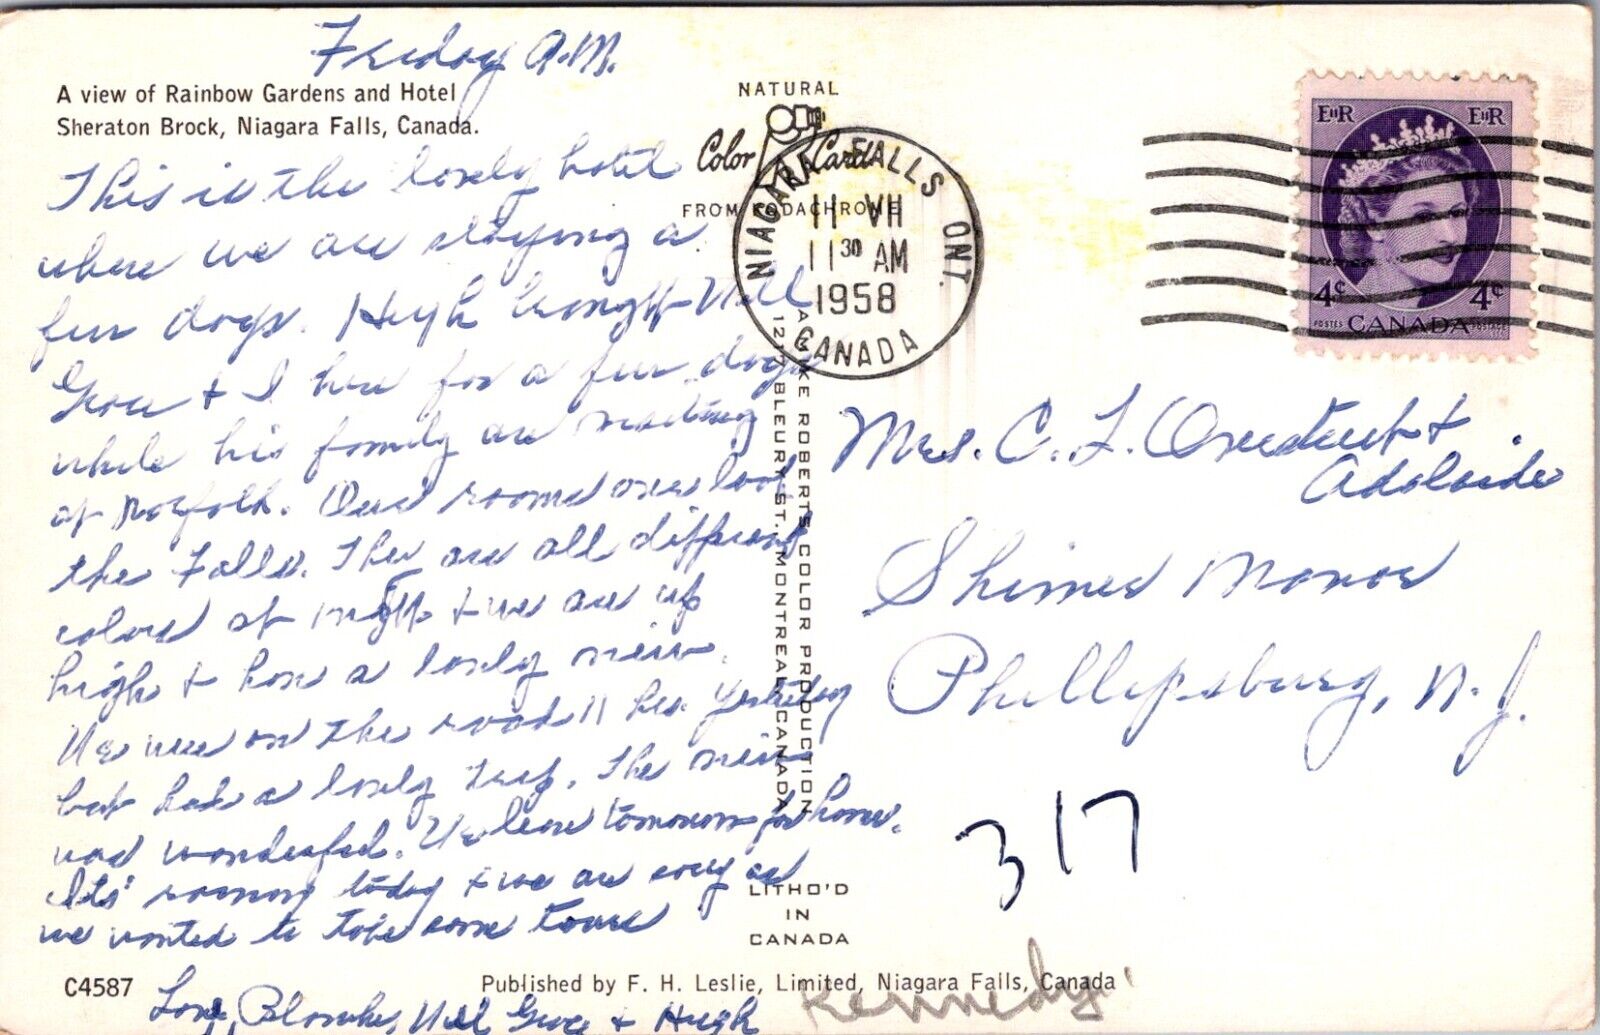 Friday A.M.
A view of Rainbow Gardens and Hotel
Sheraton Brock, Niagara Falls, Canada.
NATURAL
Color Card
FROM KODACHROME
NIAGARA FALLS ONT.
11 VII
11 30 AM
1958
CANADA
EIIR EIIR
4¢ 4¢
POSTES CANADA POSTAGE
This is the lovely hotel
where we are staying a
few days. Hugh brought Will
Grace & I here for a few days
while his family are visiting
at Norfolk. Our rooms over look
the Falls. They are all different
colors at night & we are up
high & have a lovely view.
We were on the road 11 hrs. yesterday
but had a lovely trip. The view
was wonderful. We leave tomorrow for home.
Its' raining today & we are sorry as
we wanted to take some tours
Love, Blanche, Will Grace & Hugh
Mrs. C. L. &
Adelaide
Shimer Manor
Phillipsburg, N. J.
317
Kennedy
ROBERTS COLOR PRODUCTION
1217 BLEURY ST. MONTREAL CANADA
LITHO'D
IN
CANADA
C4587
Published by F. H. Leslie, Limited, Niagara Falls, Canada